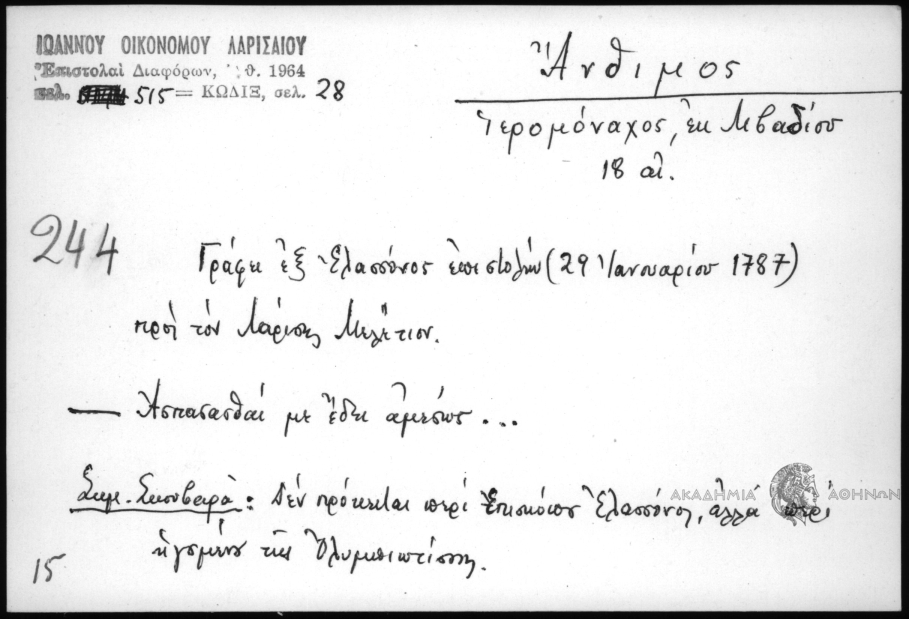 ΙΩΑΝΝΟΥ ΟΙΚΟΝΟΜΟΥ ΛΑΡΙΣΑΙΟΥ
Ἐπιστολαὶ Διαφόρων, θ. 1964
σελ. 515 = ΚΩΔΙΞ, σελ. 28
Ἄνθιμος
Ἱερομόναχος, ἐκ Λιβαδίου
18 αἰ.
244
Γράφει ἐξ Ἐλασσόνος ἐπιστολήν (29 Ἰανουαρίου 1787)
πρὸς τὸν Λαρίσης Μελέτιον.
— Ἀσπασασθαί με ἔδει ἀμέσως ...
Σημ. Σκουβαρᾶ: Δέν πρόκειται περὶ Ἐπισκόπου Ἐλασσόνος, ἀλλά περὶ
ἡγουμένου τῆς Ὀλυμπιωτίσσης.
ΑΚΑΔΗΜΙΑ ΑΘΗΝΩΝ
15